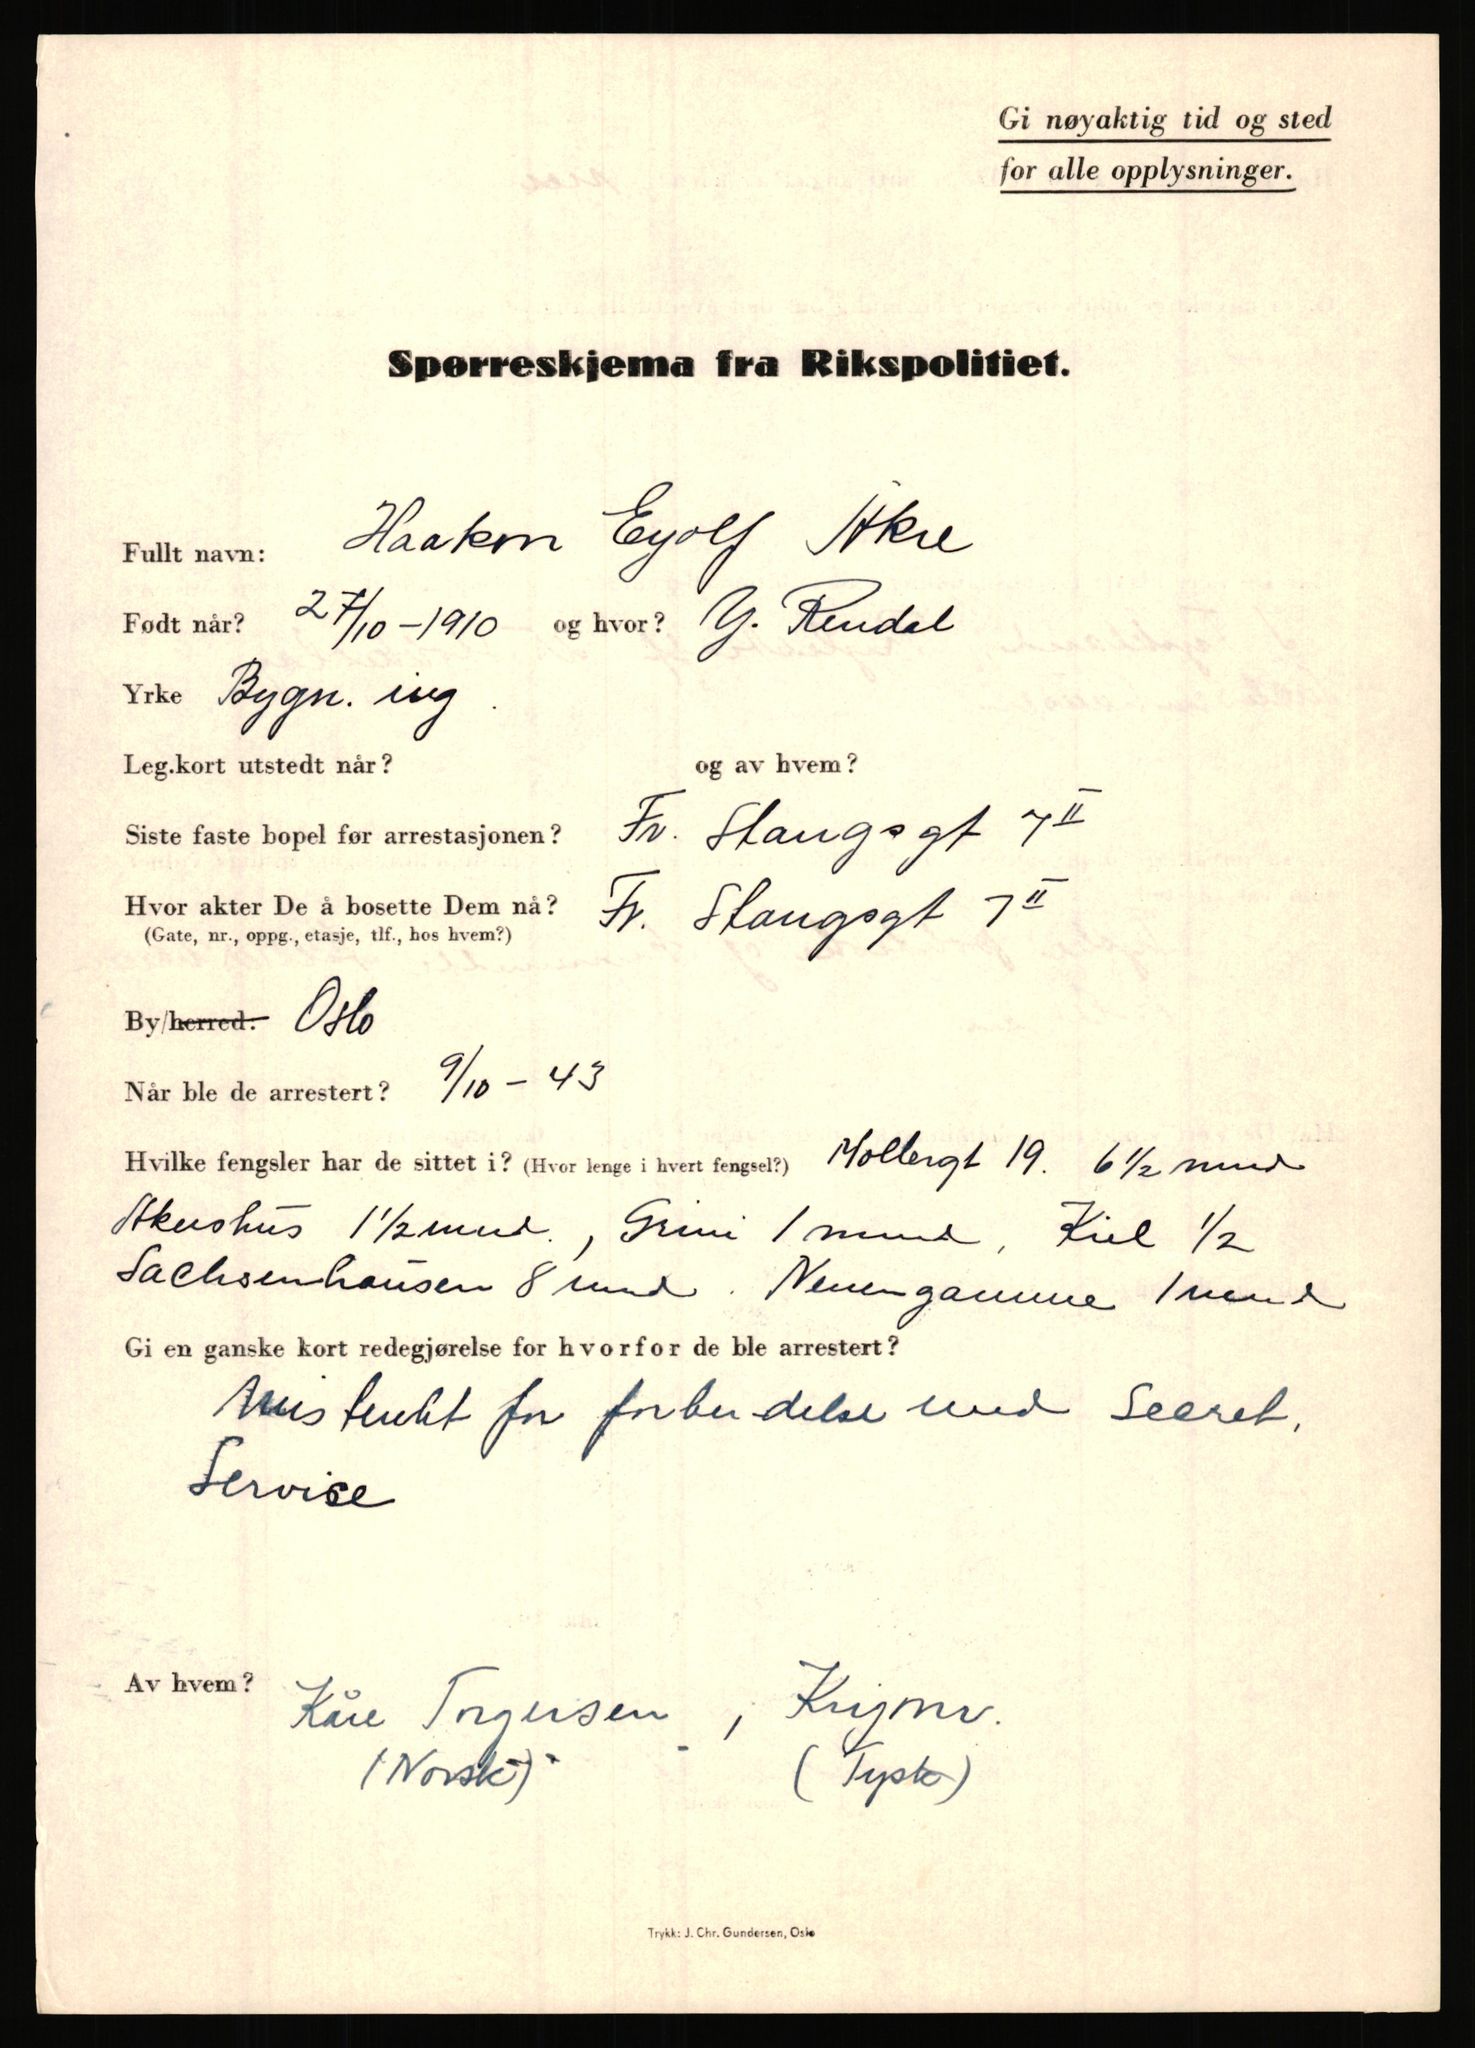 Gi nøyaktig tid og sted
for alle opplysninger.
Spørreskjema fra Rikspolitiet.
Fullt navn: Haakon Eyolf Åkre
Født når? 27/10-1910 og hvor? Y. Rendal
Yrke Bygn. ing.
Leg.kort utstedt når? og av hvem?
Siste faste bopel før arrestasjonen? Fr. Stangsgt 7 II
Hvor akter De å bosette Dem nå? Fr. Stangsgt 7 II
(Gate, nr., oppg., etasje, tlf., hos hvem?)
By/herred: Oslo
Når ble de arrestert? 9/10-43
Hvilke fengsler har de sittet i? (Hvor lenge i hvert fengsel?) Mollergt 19. 6 1/2 mnd
Akershus 1 1/2 mnd., Grini 1 mnd, Kiel 1/2
Sachsenhausen 8 mnd. Neuengamme 1 mnd
Gi en ganske kort redegjørelse for hvorfor de ble arrestert?
Mistenkt for forbindelse med Secret,
Service
Av hvem? Kåre Torgersen,
(Norsk) (Tysk)
Trykk: J. Chr. Gundersen, Oslo